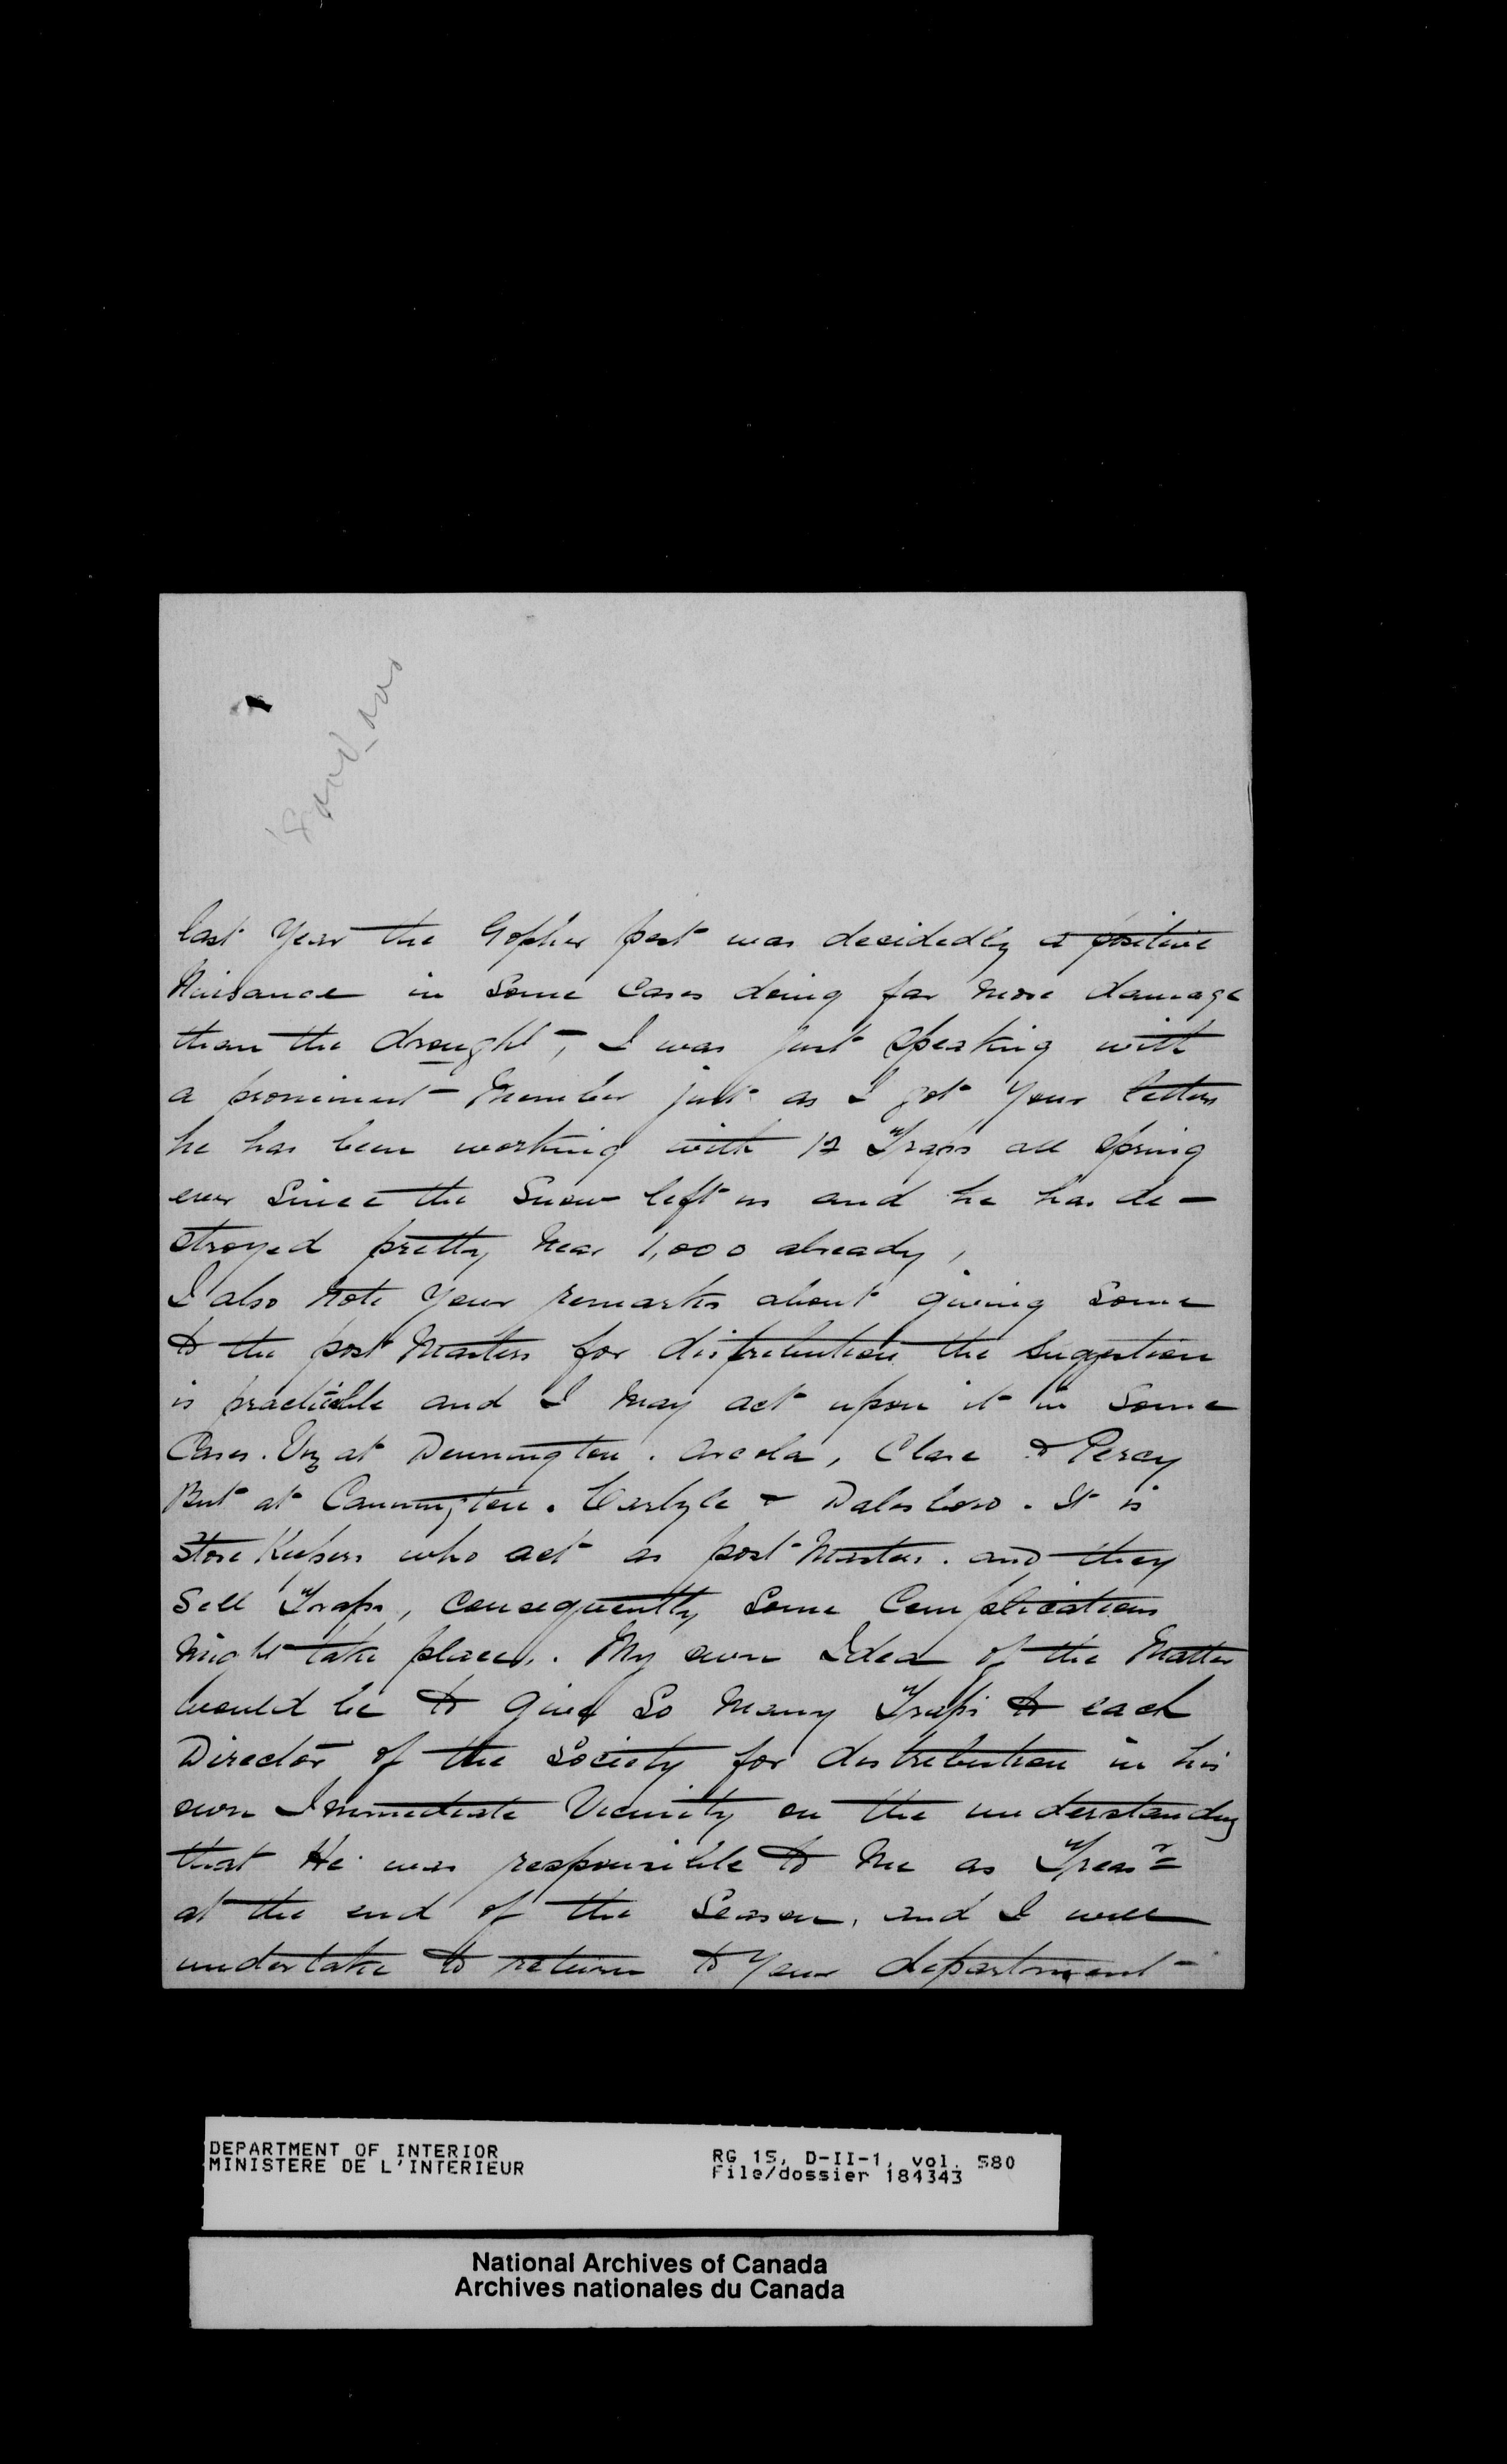 last Year the Gopher pest was decidedly a positive
Nuisance in Some Cases doing far More damage
than the drought, I was just Speaking with
a prominent Member just as I got Your letter
he has been working with 12 Traps all Spring
ever Since the Snow left us and he has de-
stroyed pretty Near 1,000 already,
I also Note Your remarks about giving Some
to the post Masters for distribution the Sugestion
is practicable and I May act upon it in Some
Cases. Viz at Dennington. Arcola, Clare & Percy
But at Cannington. Carlyle & Dalesboro. It is
Store Keepers who act as post Masters. and they
Sell Traps, Consequently Some Complications
Might take place. My own Idea of the Matter
would be to give So Many Traps to each
Director of the Society for distribution in his
own Immediate Vicinity on the understanding
that He was responsible to Me as Treasr
at the end of the Season, and I will
undertake to return to Your department
DEPARTMENT OF INTERIOR
MINISTERE DE L'INTERIEUR
RG 15, D-II-1, vol. 580
File/dossier 184343
National Archives of Canada
Archives nationales du Canada